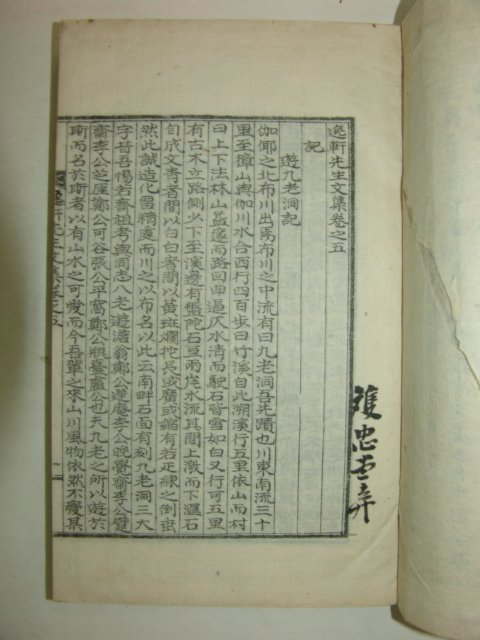 逸軒先生文集卷之五
記
遊九老洞記
伽倻之北布川出焉布川之中流有曰九老洞吾先蹟也川東南流三十
里至獐山與伽川水合西行四百步曰竹溪自此溯溪行五里依山而村
曰上下法林山益邃而路回中逼仄水清而駛石皆雪如白又行可五里
有古木立路側少下至溪邊有盤陀石亘兩岸水流其間上激而下滙石
自成文靑者間以白白者間以黃斑斕陀長或廣或縮有若疋練之倒垂
然此誠造化雷精處而川之以布名以此云南畔石面有刻九老洞三大
字昔吾惕若齋祖考與同志八老遊漁翁鄭公遯庵李公晩覺齋李公躄
齋李公芝崖鄭公可谷張公平窩鄭公樵臺盧公也夫九老之所以遊於
斯而名於斯者以有山水之可愛而今吾輩之來山川風物依然不變其
逸軒先生文集卷之五
一